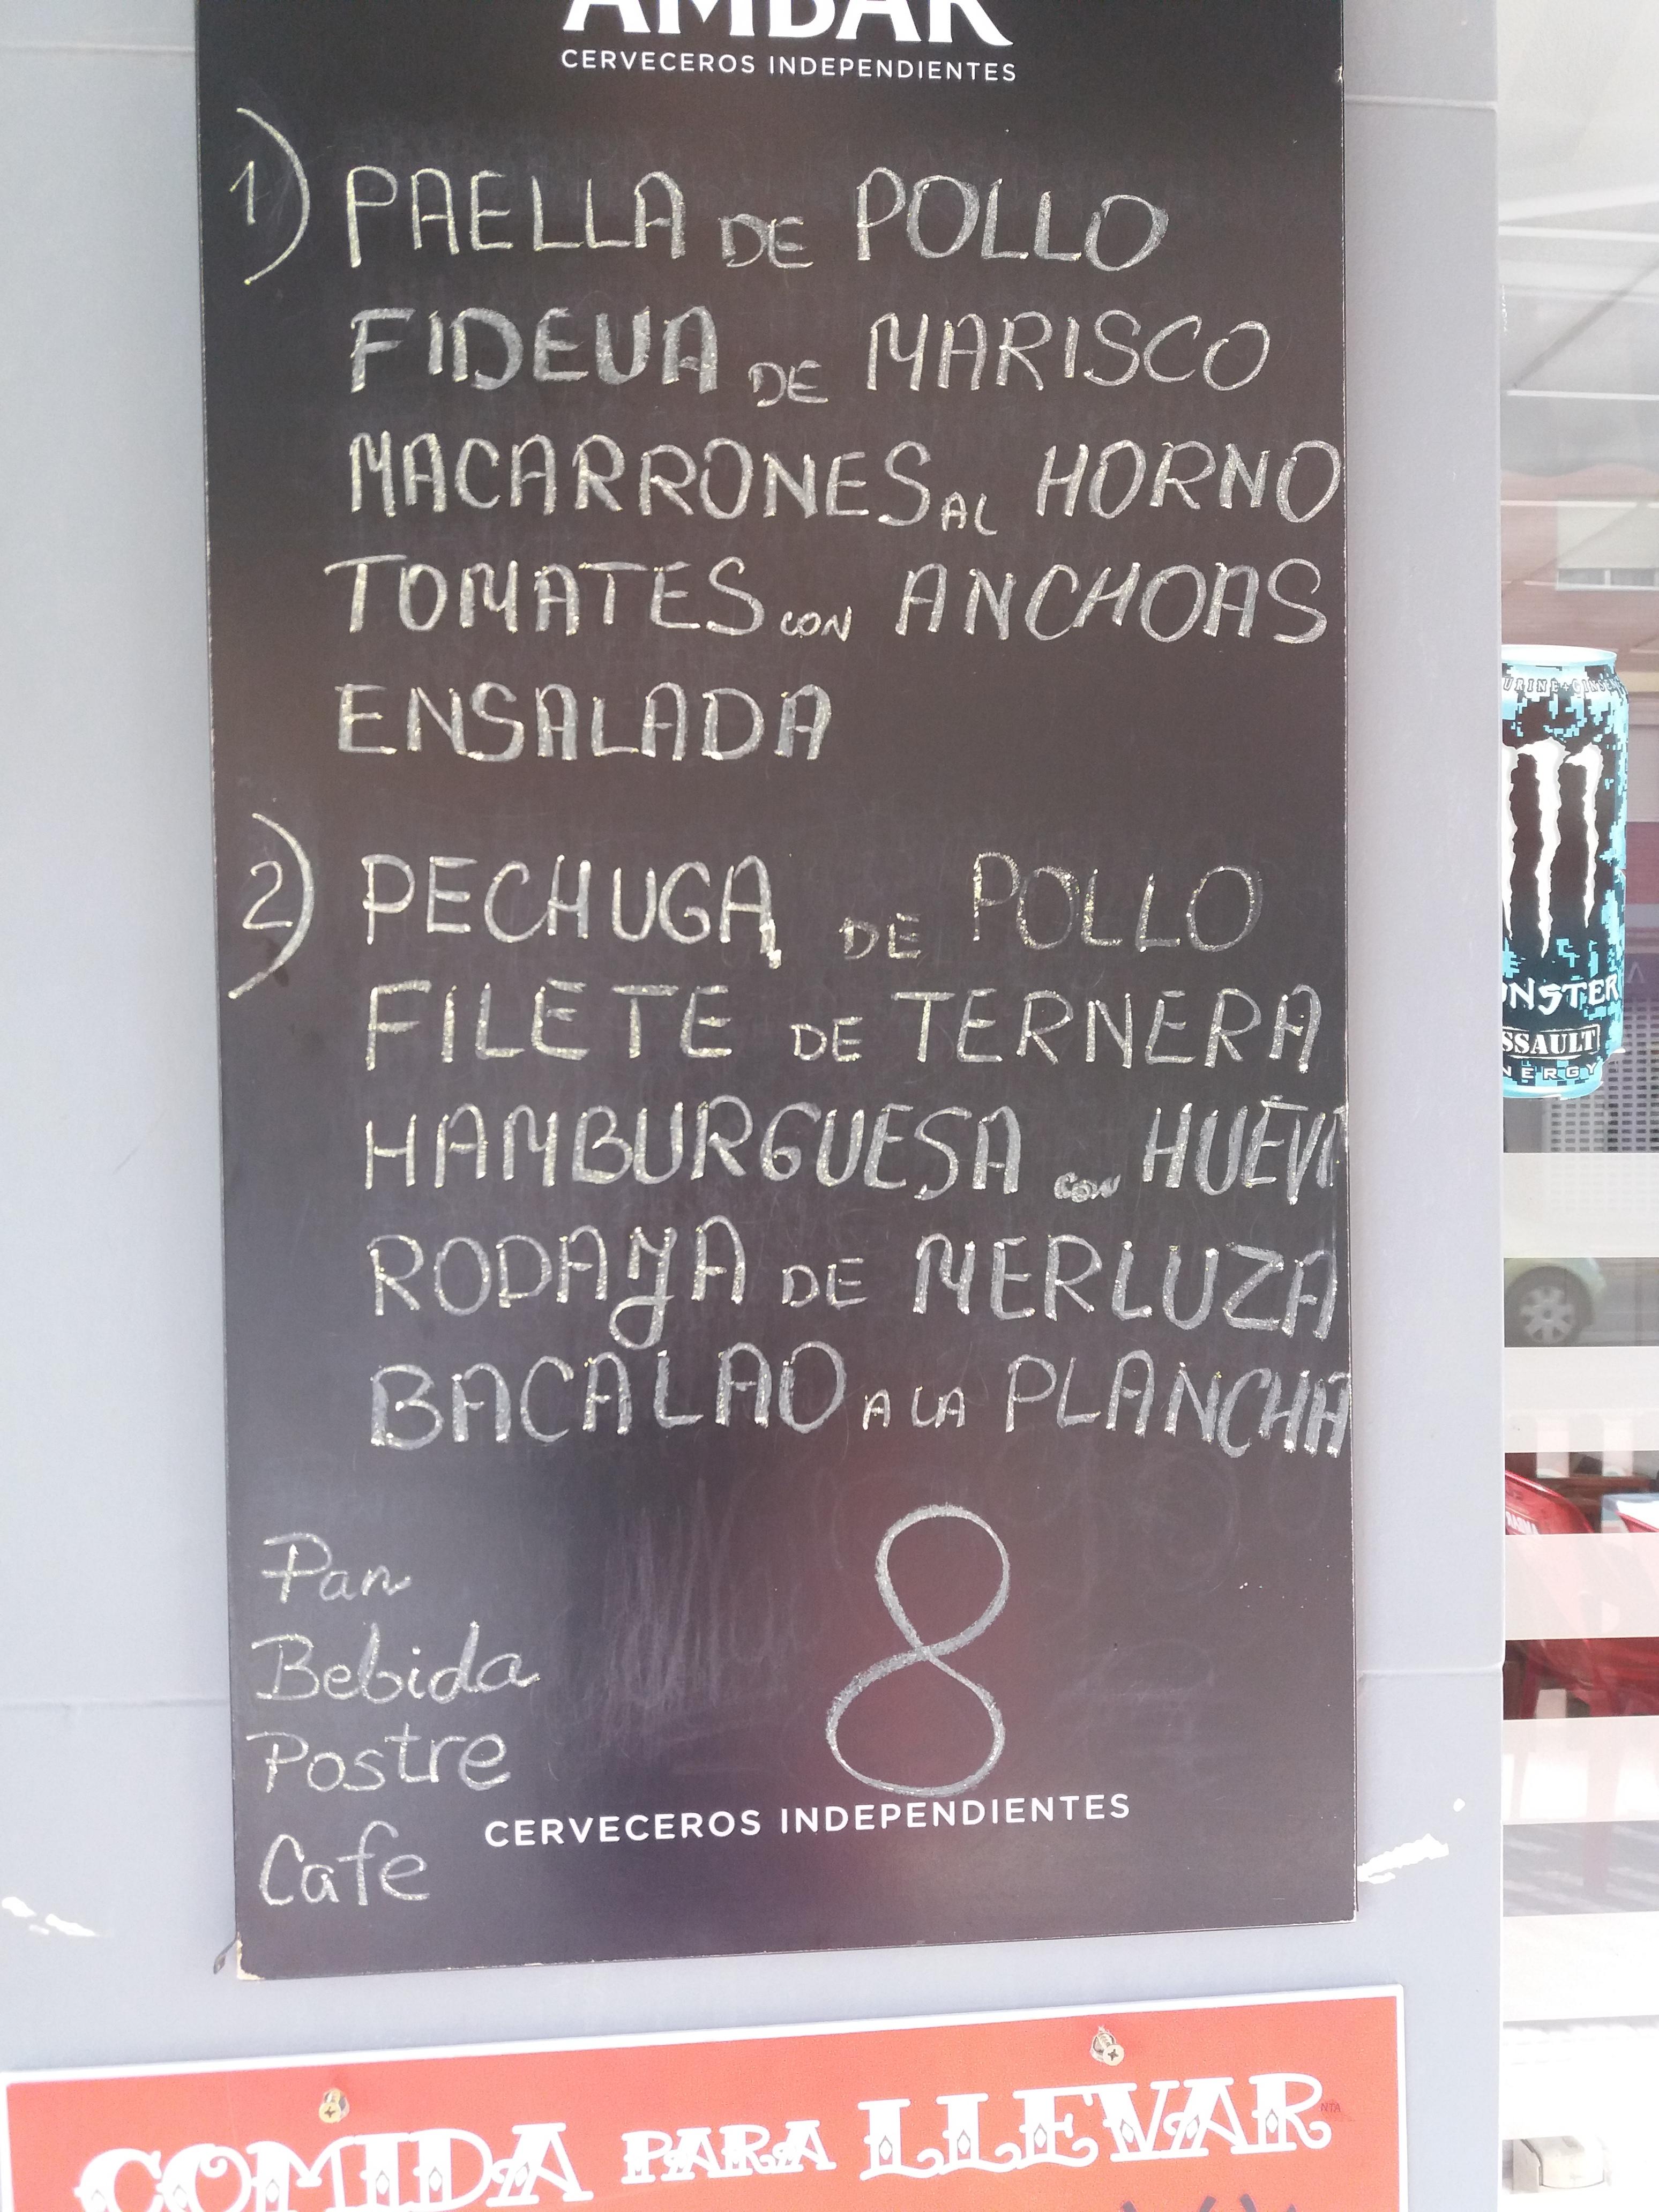 AMBAR
CERVECEROS INDEPENDIENTES
1) PAELLA DE POLLO
FIDEUA DE MARISCO
MACARRONES AL HORNO
TOMATES CON ANCHOAS
ENSALADA
2) PECHUGA DE POLLO
FILETE DE TERNERA
HAMBURGUESA CON HUEVO
RODAJA DE MERLUZA
BACALAO A LA PLANCHA
Pan
Bebida
Postre
Cafe
8
CERVECEROS INDEPENDIENTES
COMIDA PARA LLEVAR
URINE+GINSE
ONSTER
SSAULT
NERGY